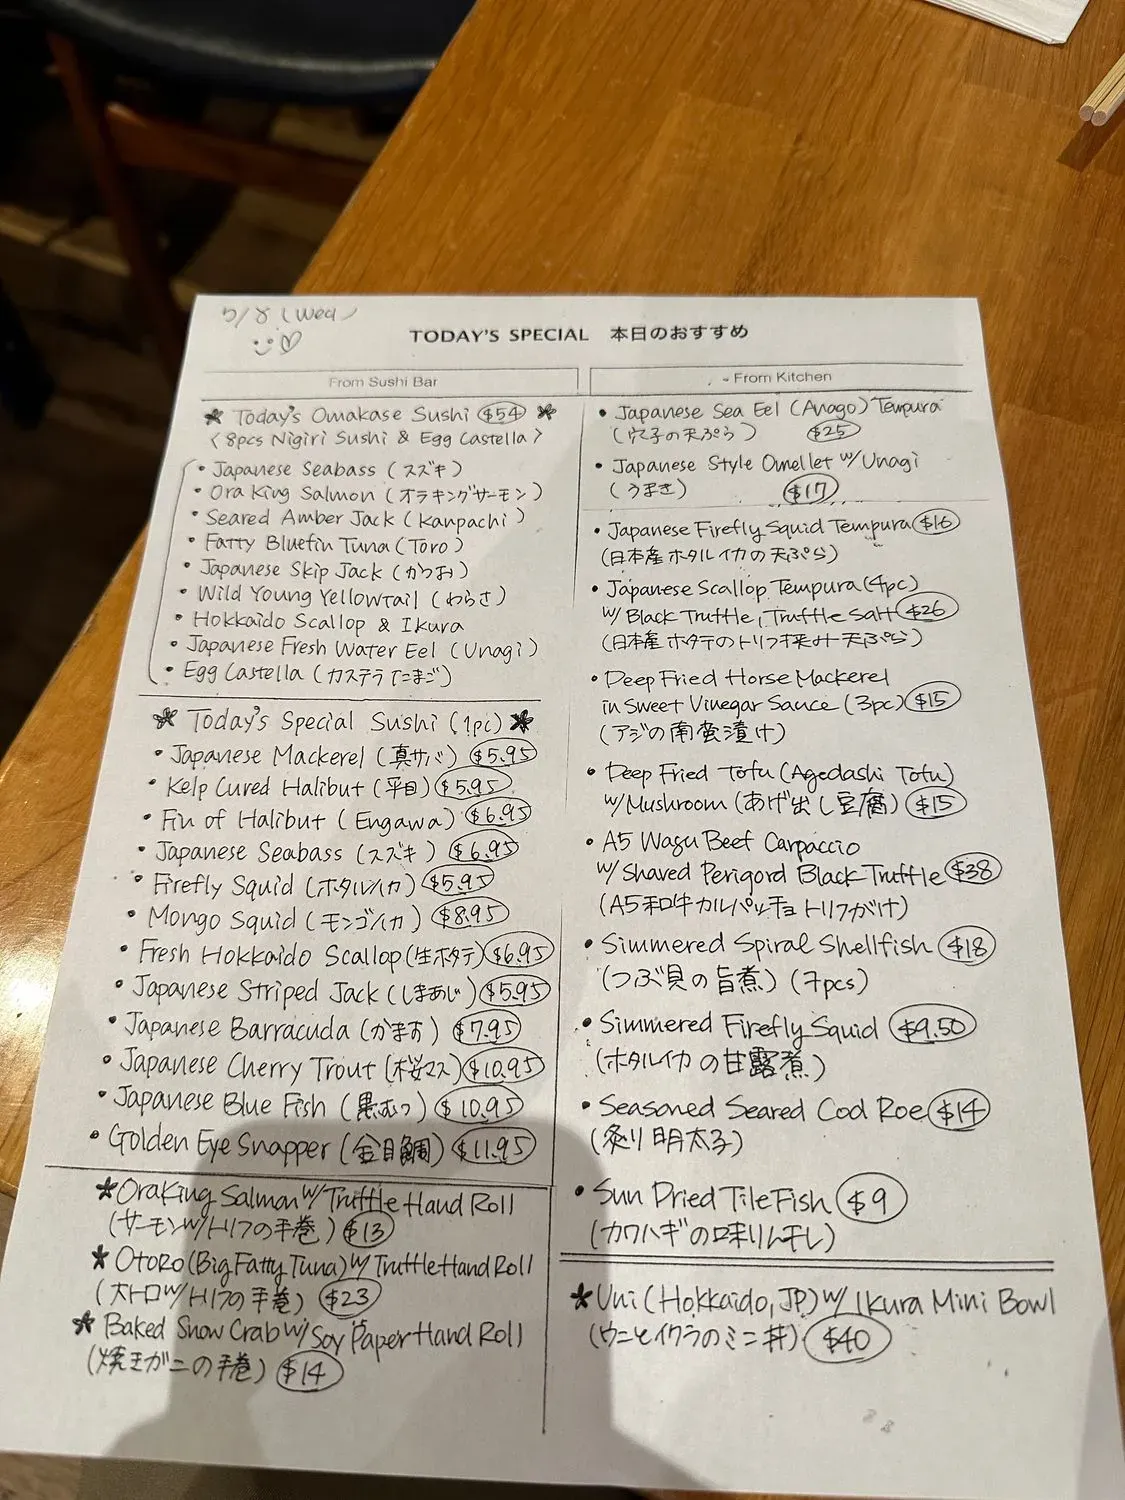 5/8 (Wed)
TODAY'S SPECIAL 本日のおすすめ
From Sushi Bar
Today's Omakase Sushi $54
<8pcs Nigiri Sushi & Egg Castella>
• Japanese Seabass (スズキ)
• Ora King Salmon (オラキングサーモン)
• Seared Amber Jack (Kanpachi)
• Fatty Bluefin Tuna (Toro)
• Japanese Skip Jack (かつお)
• Wild Young Yellowtail (わらさ)
• Hokkaido Scallop & Ikura
• Japanese Fresh Water Eel (Unagi)
• Egg Castella (カステラたまご)
Today's Special Sushi (1pc)
• Japanese Mackerel (真サバ) $5.95
• Kelp Cured Halibut (平目) $5.95
• Fin of Halibut (Engawa) $6.95
• Japanese Seabass (スズキ) $6.95
• Firefly Squid (ホタルイカ) $5.95
• Mongo Squid (モンゴイカ) $8.95
• Fresh Hokkaido Scallop (生ホタテ) $6.95
• Japanese Striped Jack (しまあじ) $5.95
• Japanese Barracuda (かます) $7.95
• Japanese Cherry Trout (桜マス) $10.95
• Japanese Blue Fish (黒むつ) $10.95
• Golden Eye Snapper (金目鯛) $11.95
Ora King Salmon w/ Truffle Hand Roll
(サーモンw/トリフの手巻) $13
Otoro (Big Fatty Tuna) w/ Truffle Hand Roll
(大トロw/トリフの手巻) $23
Baked Snow Crab w/ Soy Paper Hand Roll
(焼きガニの手巻) $14
From Kitchen
• Japanese Sea Eel (Anago) Tempura
(穴子の天ぷら) $25
• Japanese Style Omellet w/ Unagi
(うまき) $17
• Japanese Firefly Squid Tempura $16
(日本産ホタルイカの天ぷら)
• Japanese Scallop Tempura (4pc)
w/ Black Truffle, Truffle Salt $26
(日本産ホタテのトリフ挟み天ぷら)
• Deep Fried Horse Mackerel
in Sweet Vinegar Sauce (3pc) $15
(アジの南蛮漬け)
• Deep Fried Tofu (Agedashi Tofu)
w/ Mushroom (あげ出し豆腐) $15
• A5 Wagu Beef Carpaccio
w/ Shaved Perigord Black Truffle $38
(A5和牛カルパッチョトリフがけ)
• Simmered Spiral Shellfish $18
(つぶ貝の旨煮) (7pcs)
• Simmered Firefly Squid $9.50
(ホタルイカの甘露煮)
• Seasoned Seared Cod Roe $14
(炙り明太子)
• Sun Dried Tile Fish $9
(カワハギの味りん干し)
Uni (Hokkaido, JP) w/ Ikura Mini Bowl
(ウニとイクラのミニ丼) $40